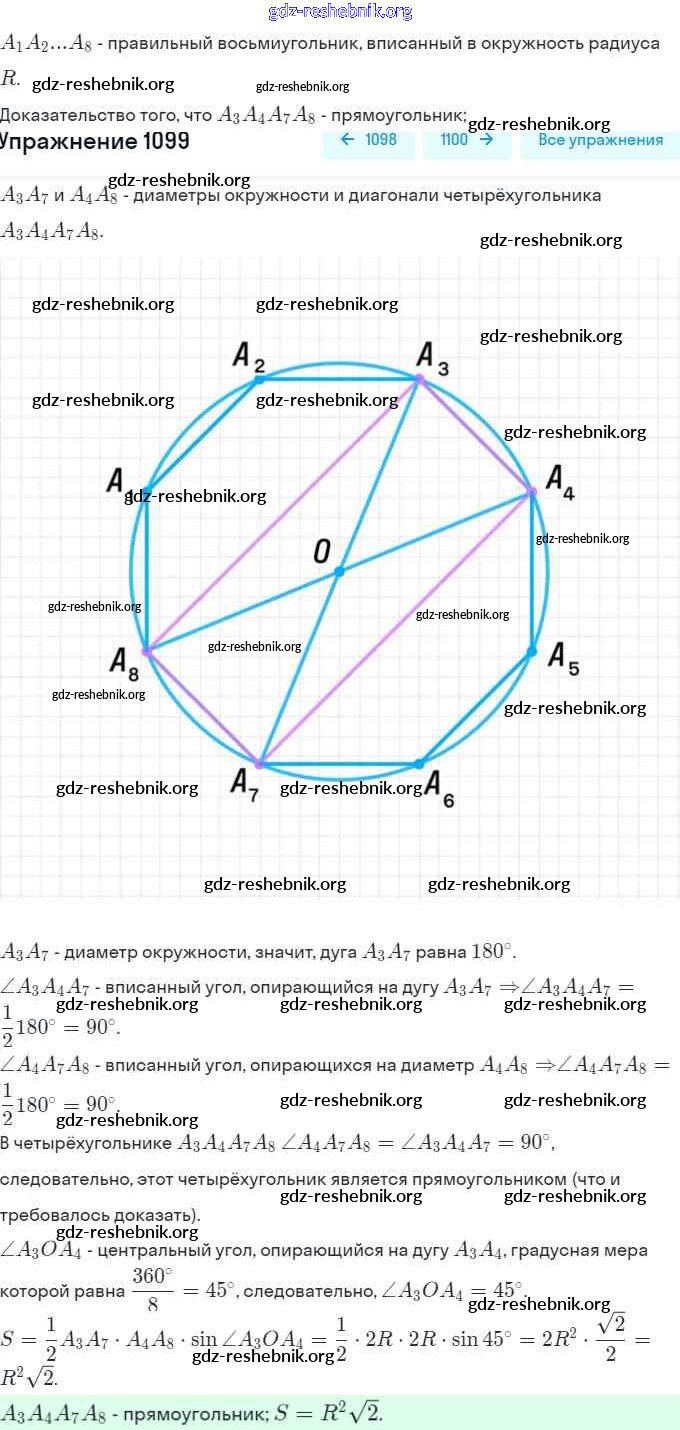 gdz-reshebnik.org
A₁A₂...A₈ - правильный восьмиугольник, вписанный в окружность радиуса
R. gdz-reshebnik.org gdz-reshebnik.org
Доказательство того, что A₃A₄A₇A₈ - прямоугольник; gdz-reshebnik.org
Упражнение 1099 ← 1098 1100 → Все упражнения
gdz-reshebnik.org
A₃A₇ и A₄A₈ - диаметры окружности и диагонали четырёхугольника
A₃A₄A₇A₈.
gdz-reshebnik.org
gdz-reshebnik.org gdz-reshebnik.org
gdz-reshebnik.org
A₂ A₃
gdz-reshebnik.org gdz-reshebnik.org
gdz-reshebnik.org
A₁ A₄
gdz-reshebnik.org
gdz-reshebnik.org
O
gdz-reshebnik.org gdz-reshebnik.org
gdz-reshebnik.org
A₈ A₅
gdz-reshebnik.org
gdz-reshebnik.org
A₇ A₆
gdz-reshebnik.org gdz-reshebnik.org
gdz-reshebnik.org gdz-reshebnik.org
A₃A₇ - диаметр окружности, значит, дуга A₃A₇ равна 180°.
∠A₃A₄A₇ - вписанный угол, опирающийся на дугу A₃A₇ ⇒∠A₃A₄A₇ =
gdz-reshebnik.org gdz-reshebnik.org gdz-reshebnik.org
1/2 180° = 90°.
∠A₄A₇A₈ - вписанный угол, опирающихся на диаметр A₄A₈ ⇒∠A₄A₇A₈ =
gdz-reshebnik.org gdz-reshebnik.org
1/2 180° = 90°.
gdz-reshebnik.org
В четырёхугольнике A₃A₄A₇A₈ ∠A₄A₇A₈ = ∠A₃A₄A₇ = 90°,
следовательно, этот четырёхугольник является прямоугольником (что и
gdz-reshebnik.org gdz-reshebnik.org
требовалось доказать).
gdz-reshebnik.org
∠A₃OA₄ - центральный угол, опирающийся на дугу A₃A₄, градусная мера
которой равна 360°/8 = 45°, следовательно, ∠A₃OA₄ = 45°.
gdz-reshebnik.org
S = 1/2 A₃A₇ · A₄A₈ · sin ∠A₃OA₄ = 1/2 · 2R · 2R · sin 45° = 2R² · √2/2 =
gdz-reshebnik.org
R²√2.
A₃A₄A₇A₈ - прямоугольник; S = R²√2.